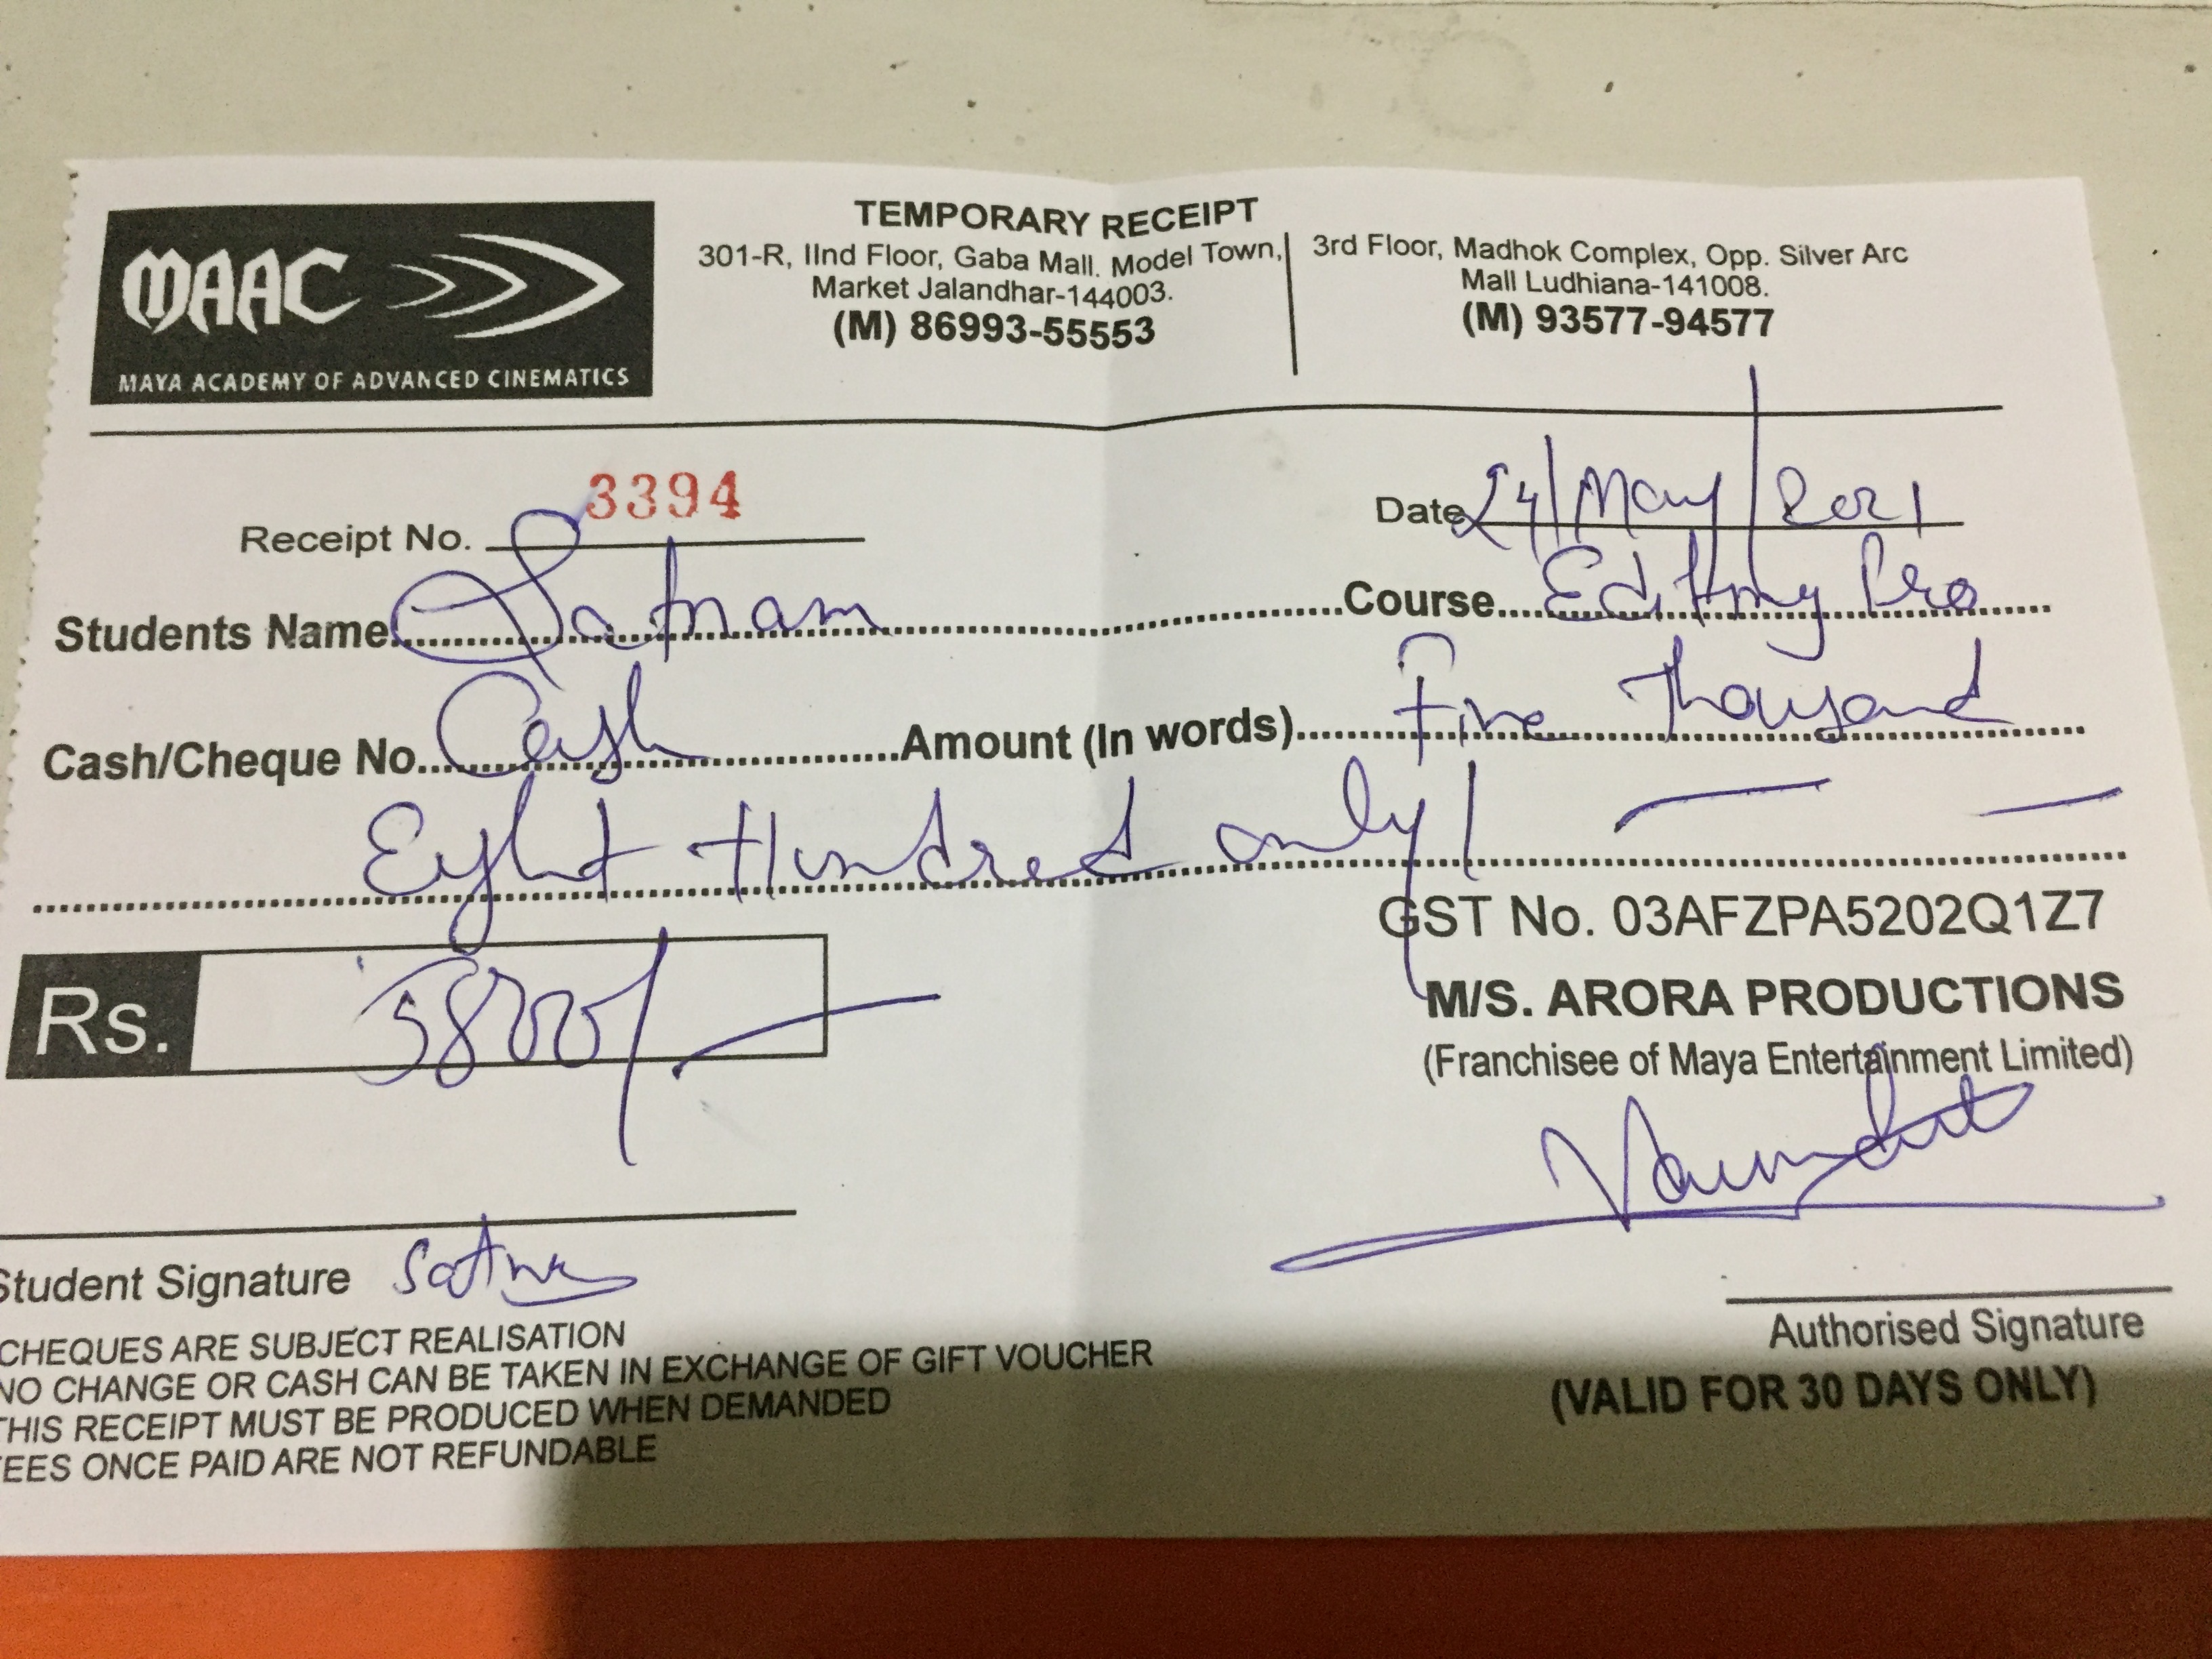 MAAC
MAYA ACADEMY OF ADVANCED CINEMATICS
TEMPORARY RECEIPT
301-R, IInd Floor, Gaba Mall. Model Town,
Market Jalandhar-144003.
(M) 86993-55553
3rd Floor, Madhok Complex, Opp. Silver Arc
Mall Ludhiana-141008.
(M) 93577-94577
Receipt No. 3394
Date 24/May/2021
Students Name Satnam Course Editing
Cash/Cheque No. Cash Amount (In words) Five Thousand
Eight Hundred only
Rs. 5800/
GST No. 03AFZPA5202Q1Z7
M/S. ARORA PRODUCTIONS
(Franchisee of Maya Entertainment Limited)
Student Signature
Authorised Signature
CHEQUES ARE SUBJECT REALISATION
NO CHANGE OR CASH CAN BE TAKEN IN EXCHANGE OF GIFT VOUCHER
THIS RECEIPT MUST BE PRODUCED WHEN DEMANDED
FEES ONCE PAID ARE NOT REFUNDABLE
(VALID FOR 30 DAYS ONLY)